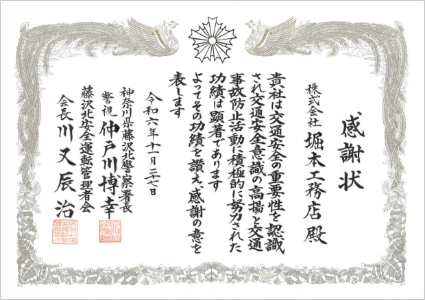 感謝状
株式会社 堀本工務店 殿
貴社は交通安全の重要性を認識
され交通安全意識の高揚と交通
事故防止活動に積極的に努力された
功績は顕著であります
よってその功績を讃え、感謝の意を
表します
令和六年十一月二十七日
神奈川県藤沢北警察署長
警視 仲戸川博幸
藤沢北安全運転管理者会
会長 川又辰治